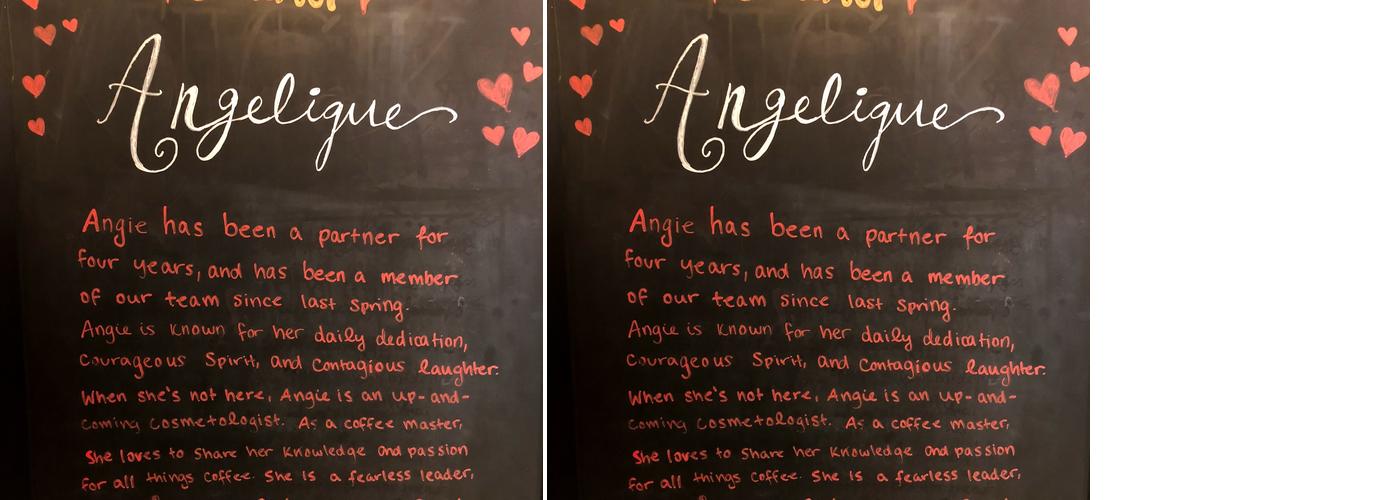 Angelique
Angie has been a partner for
four years, and has been a member
of our team since last spring.
Angie is known for her daily dedication,
Courageous Spirit, and Contagious laughter.
When she's not here, Angie is an up-and-
coming cosmetologist. As a coffee master,
She loves to share her knowledge and passion
for all things coffee. She is a fearless leader,
Angelique
Angie has been a partner for
four years, and has been a member
of our team since last spring.
Angie is known for her daily dedication,
Courageous Spirit, and Contagious laughter.
When she's not here, Angie is an up-and-
coming cosmetologist. As a coffee master,
She loves to share her knowledge and passion
for all things coffee. She is a fearless leader,